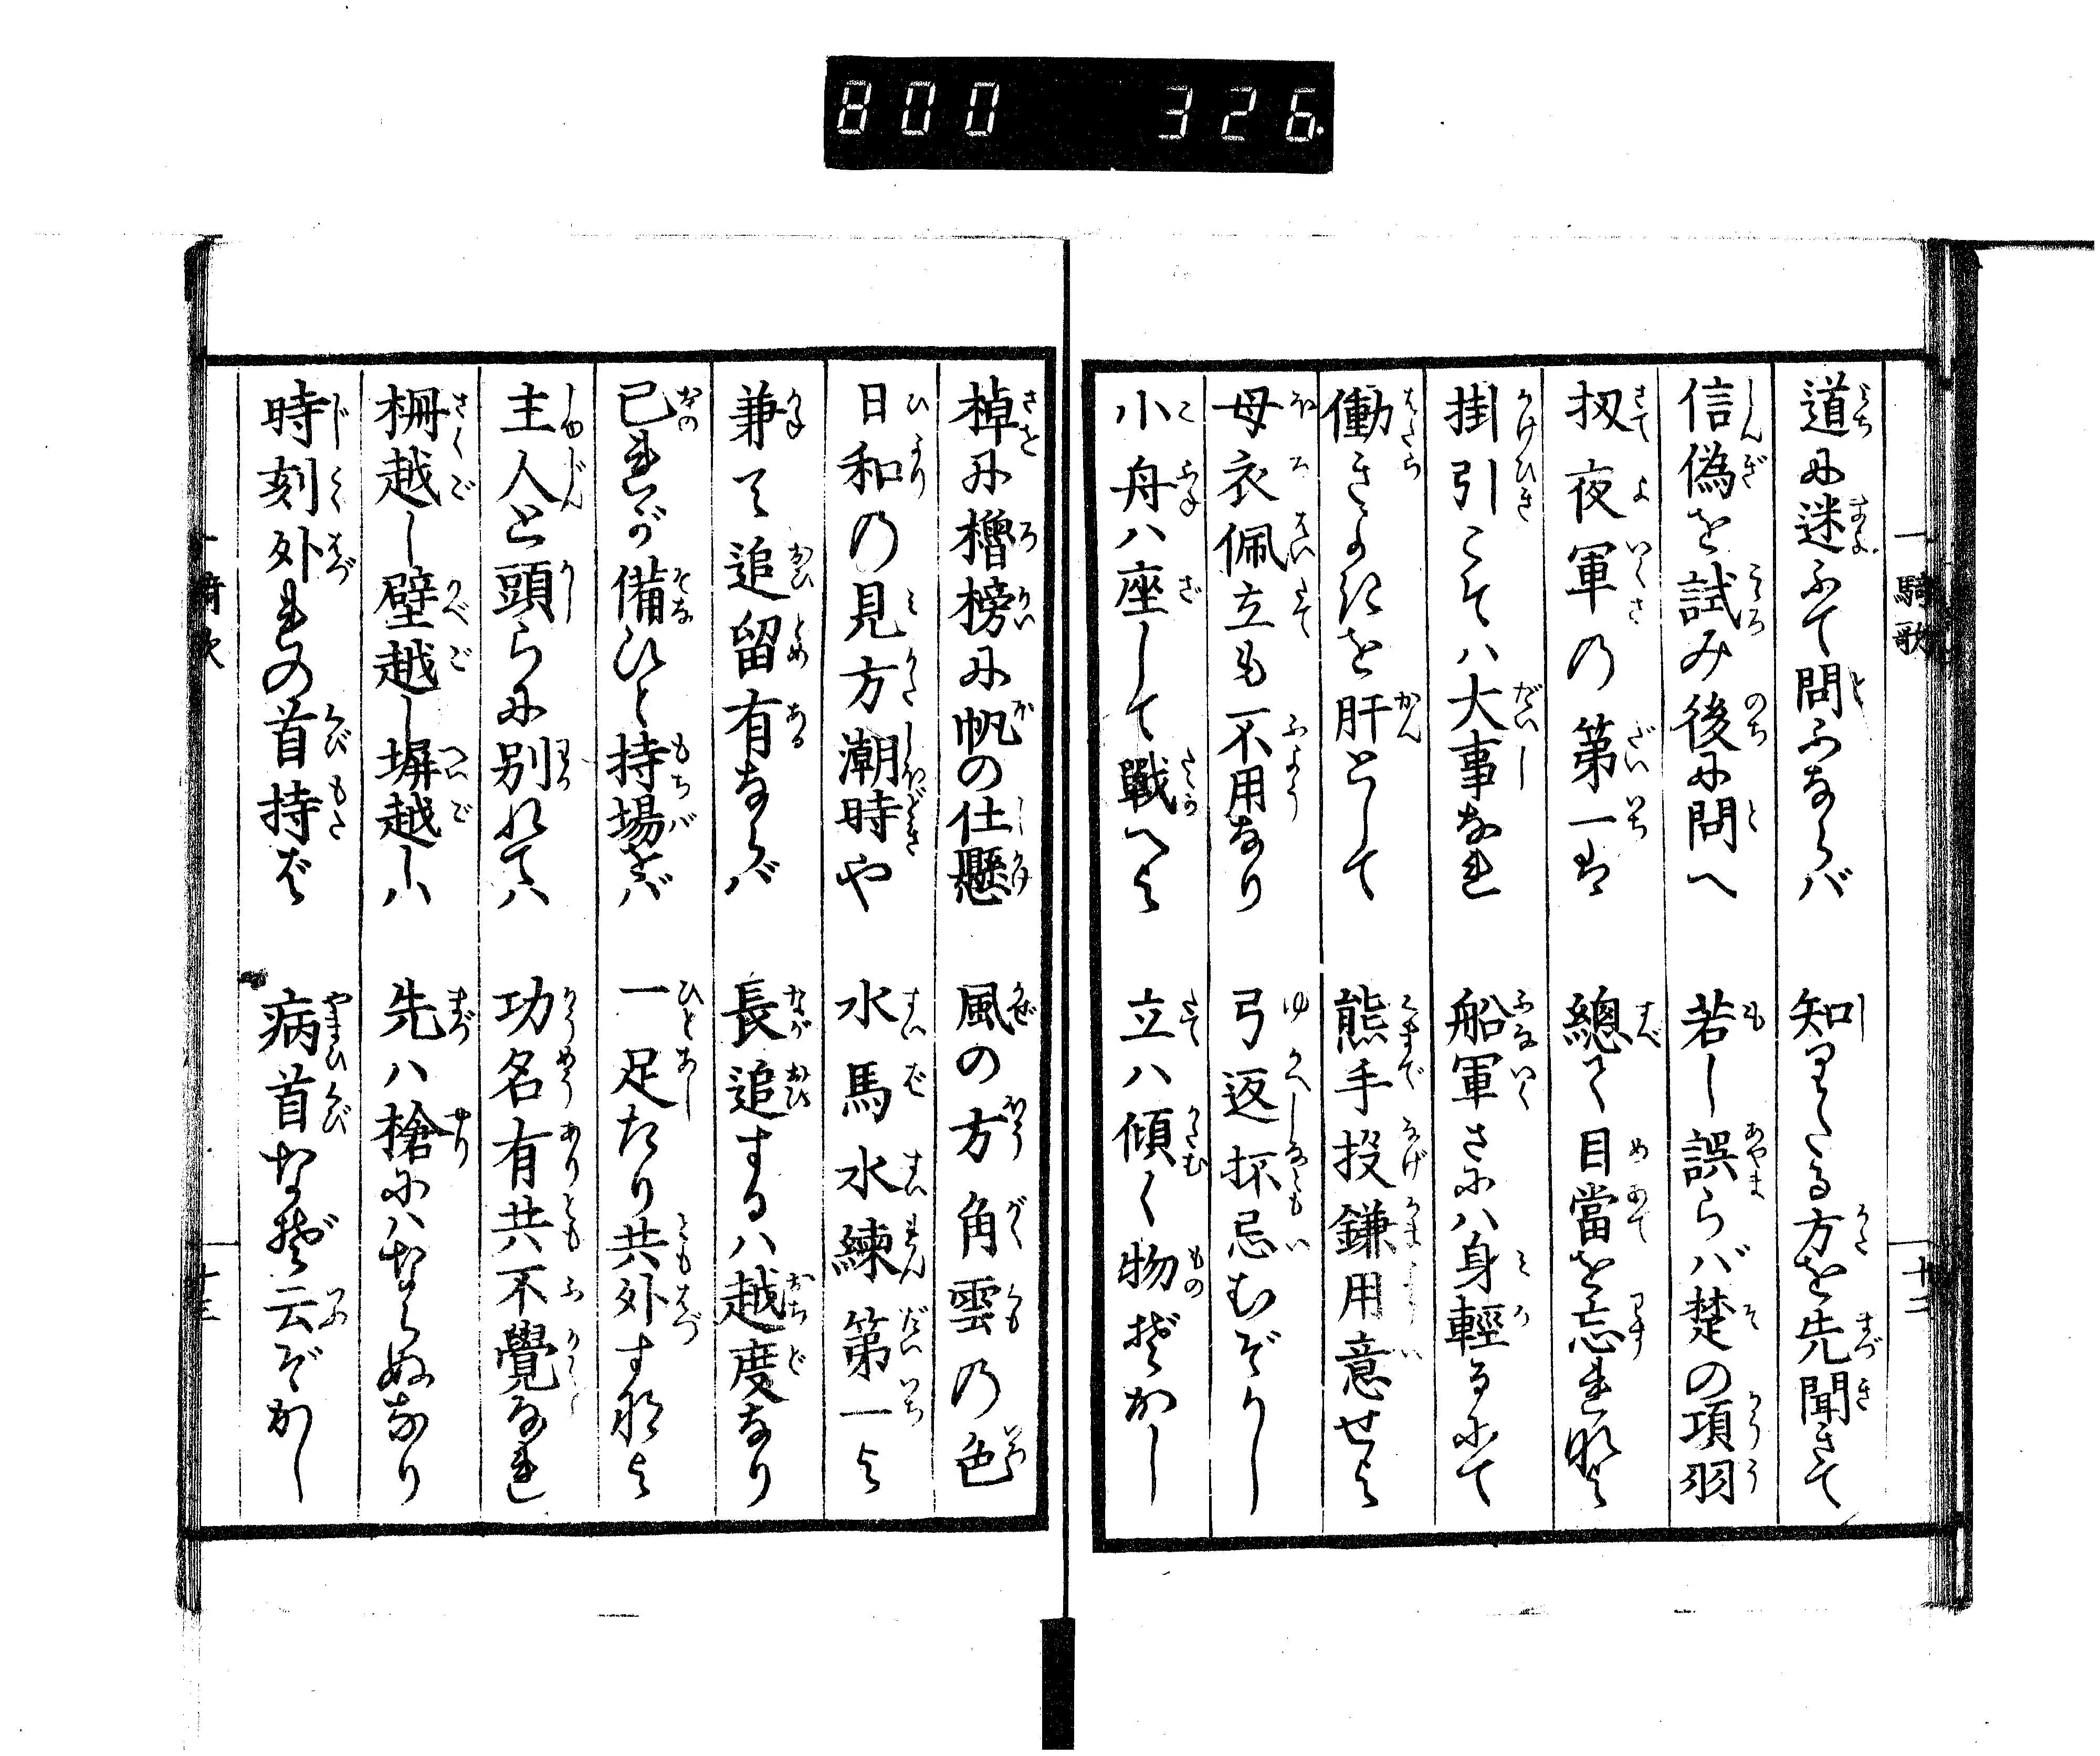 800 326.
一騎歌 十二
道に迷ふて問ふならバ 知りたる方を先聞きて
信偽を試み後に問へ 若し誤らバ楚の項羽
扨夜軍の第一は 總て目當を忘れ難く
掛引こそハ大事なれ 船軍さにハ身輕るにて
働きよきを肝として 熊手投鎌用意せよ
母衣佩立も不用なり 弓返抔忌むぞかし
小舟ハ座して戰へよ 立ハ傾く物ぞかし
棹に櫓榜に帆の仕懸 風の方角雲の色
日和の見方潮時や 水馬水練第一よ
兼て追留有ならバ 長追するハ越度なり
己れが備ひと持場をバ 一足たり共外す難よ
主人と頭らに別れてハ 功名有共不覺なれ
柵越し壁越し塀越しハ 先ハ槍にハならぬなり
時刻外れの首持ば 病首なぞ云ぞかし
一騎歌 十三